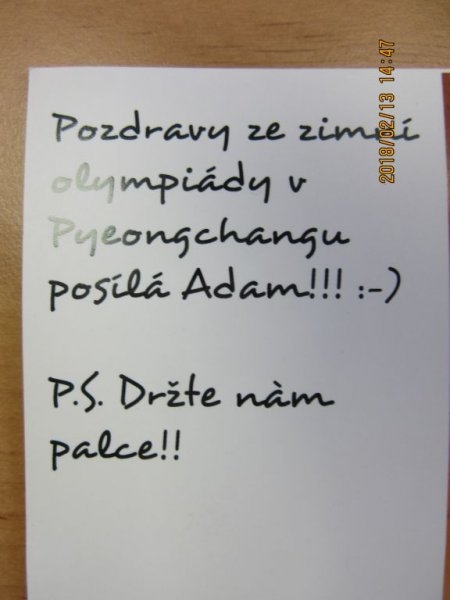 Pozdravy ze zimní
olympiády v
Pyeongchangu
posílá Adam!!! :-)
P.S. Držte nàm
palce!!
2018/02/13 14:47